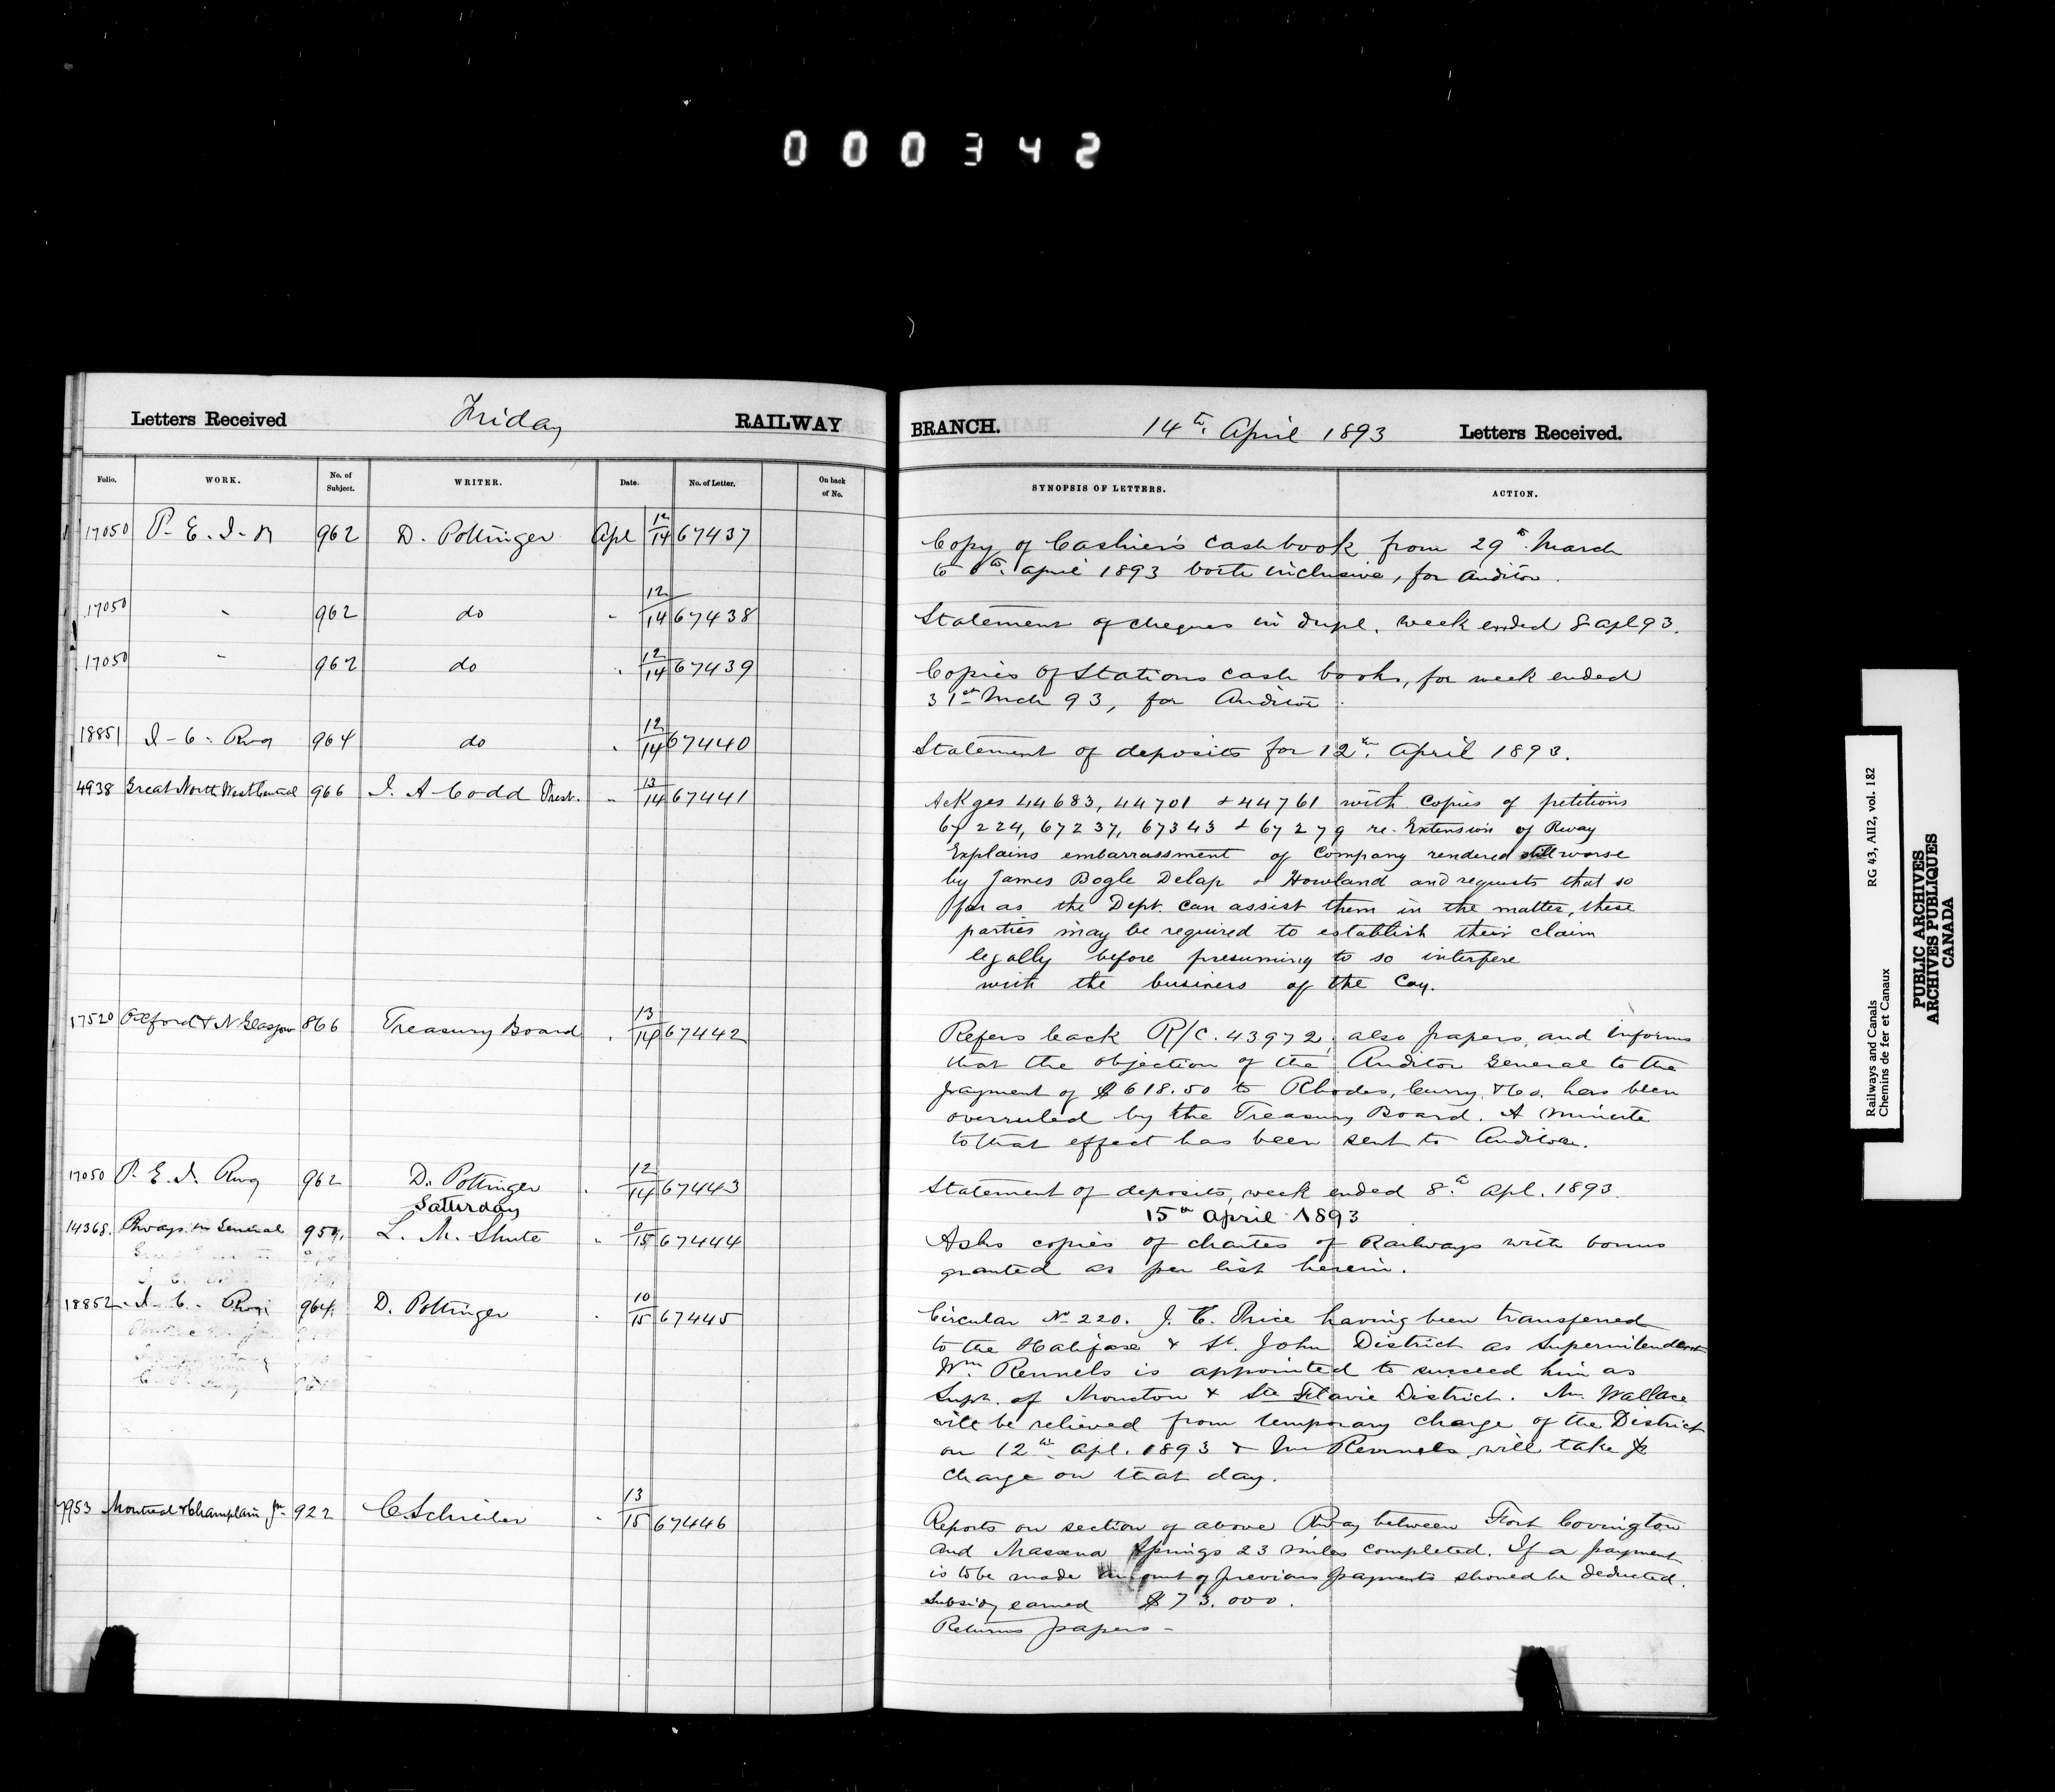 000342
Letters Received Friday RAILWAY
Folio. WORK. No. of Subject. WRITER. Date. No. of Letter. On back of No.
17050 P. E. I. R 962 D. Pottinger Apl 12/14 67437
17050 " 962 do " 12/14 67438
17050 " 962 do " 12/14 67439
18851 I-C. Rwy 964 do " 12/14 67440
4938 Great North West Central 966 J. A Codd Prest. " 13/14 67441
17520 Oxford & N Glasgow 866 Treasury Board " 13/14 67442
17050 P. E. I. Rwy 962 D. Pottinger " 12/14 67443
Saturday
14368. Rways in General 959. L. M. Shute " 9/15 67444
18852 I. C. Rwy 964. D. Pottinger " 10/15 67445
7953 Montreal & Champlain Jn 922 C Schreiber " 13/15 67446
BRANCH. 14th. April 1893 Letters Received.
SYNOPSIS OF LETTERS. ACTION.
Copy of Cashier's cashbook from 29th March
to 6th. April 1893 both inclusive, for Auditor.
Statement of cheques in dupl. week ended 8 apl 93.
Copies of Stations cash books, for week ended
31st Mch 93, for Auditor.
Statement of deposits for 12th. April 1893.
Ackges 44683, 44701 & 44761 with Copies of petitions
67224, 67237, 67343 & 67279 re. Extension of Rway
Explains embarrassment of Company rendered still worse
by James Bogle Delap & Howland and requests that so
far as the Dept. can assist them in the matter, these
parties may be required to establish their claim
legally before presuming to so interfere
with the business of the Coy.
Refers back R/C. 43972, also papers, and informs
that the objection of the Auditor General to the
payment of $618.50 to Rhodes, Curry & Co. has been
overruled by the Treasury Board. A minute
to that effect has been sent to Auditor.
Statement of deposits, week ended 8th. Apl. 1893.
15th April 1893
Asks copies of charters of Railways with bonus
granted as per list herein.
Circular No 220. J. E. Price having been transferred
to the Halifax & St. John District as Superintendent
Wm Rennels is appointed to succeed him as
Supt. of Moncton & Ste Flavie District. Mr. Wallace
will be relieved from temporary charge of the District
on 12th Apl. 1893 & Mr Rennels will take
charge on that day.
Reports on section of above Rway between Fort Covington
and Massena Springs 23 miles completed. If a payment
is to be made amount of previous payments should be deducted.
Subsidy earned $73.000.
Returns papers -
Railways and Canals RG 43, AII2, vol. 182
Chemins de fer et Canaux
PUBLIC ARCHIVES
ARCHIVES PUBLIQUES
CANADA